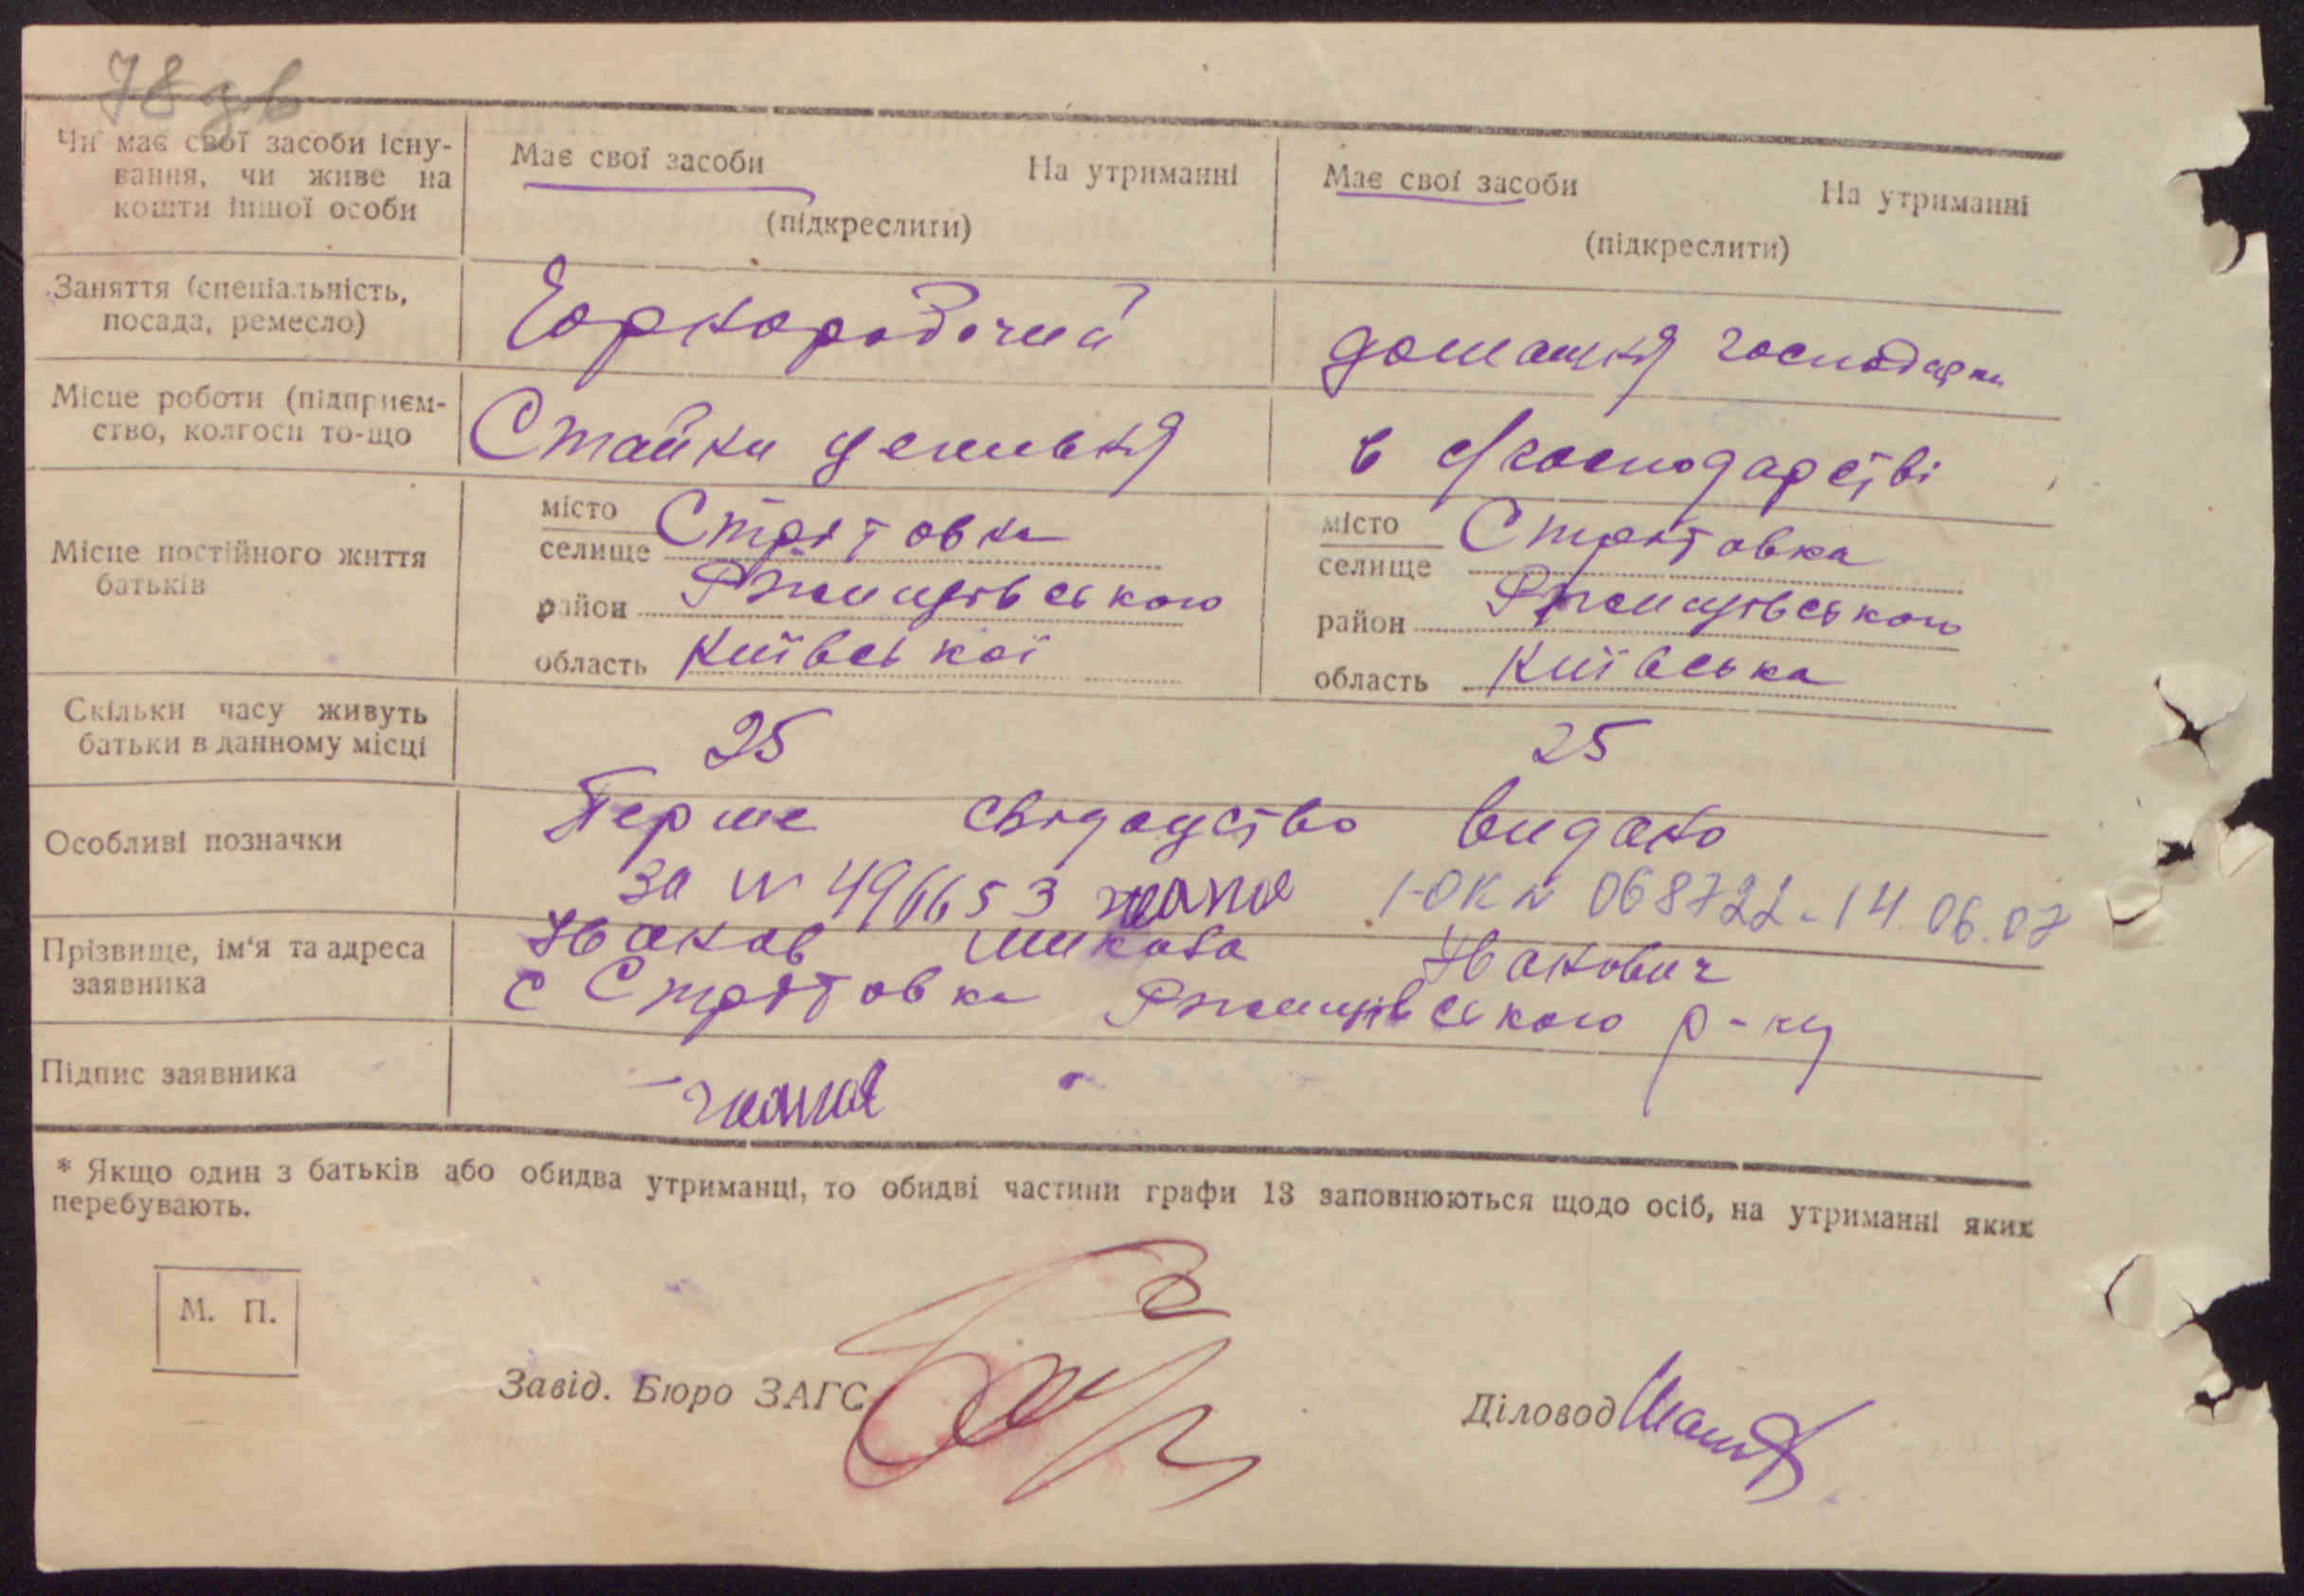 78 зв
Чи має свої засоби існу-
вання, чи живе на
кошти іншої особи
Має свої засоби На утриманні
(підкреслити)
Має свої засоби На утриманні
(підкреслити)
Заняття (спеціальність,
посада, ремесло)
Чорноробочий
домашня господарка
Місце роботи (підприєм-
ство, колгосп то-що
Стайки
в с/господарстві
Місце постійного життя
батьків
місто
селище Стрітовка
район Ржищівського
область Київської
місто
селище Стрітовка
район Ржищівського
область Київська
Скільки часу живуть
батьки в данному місці
25
25
Особливі позначки
Перше свідоцтво видано
за № 496653 I-ОК № 068722 - 14.06.07
Прізвище, ім'я та адреса
заявника
Іванов Микола Іванович
с Стрітовка Ржищівського р-ну
Підпис заявника
* Якщо один з батьків або обидва утриманці, то обидві частини графи 13 заповнюються щодо осіб, на утриманні яких
перебувають.
М. П.
Завід. Бюро ЗАГС
Діловод